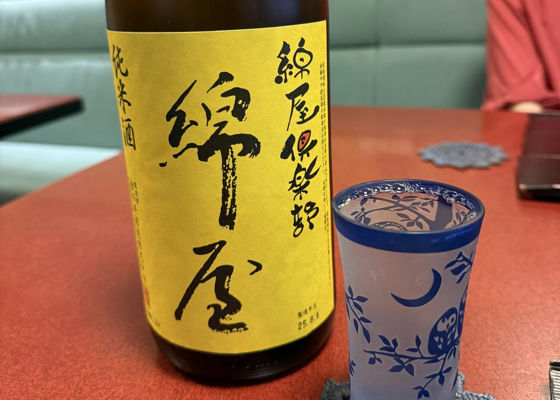 綿屋倶楽部
綿屋
純米酒
製造年月
25.8.